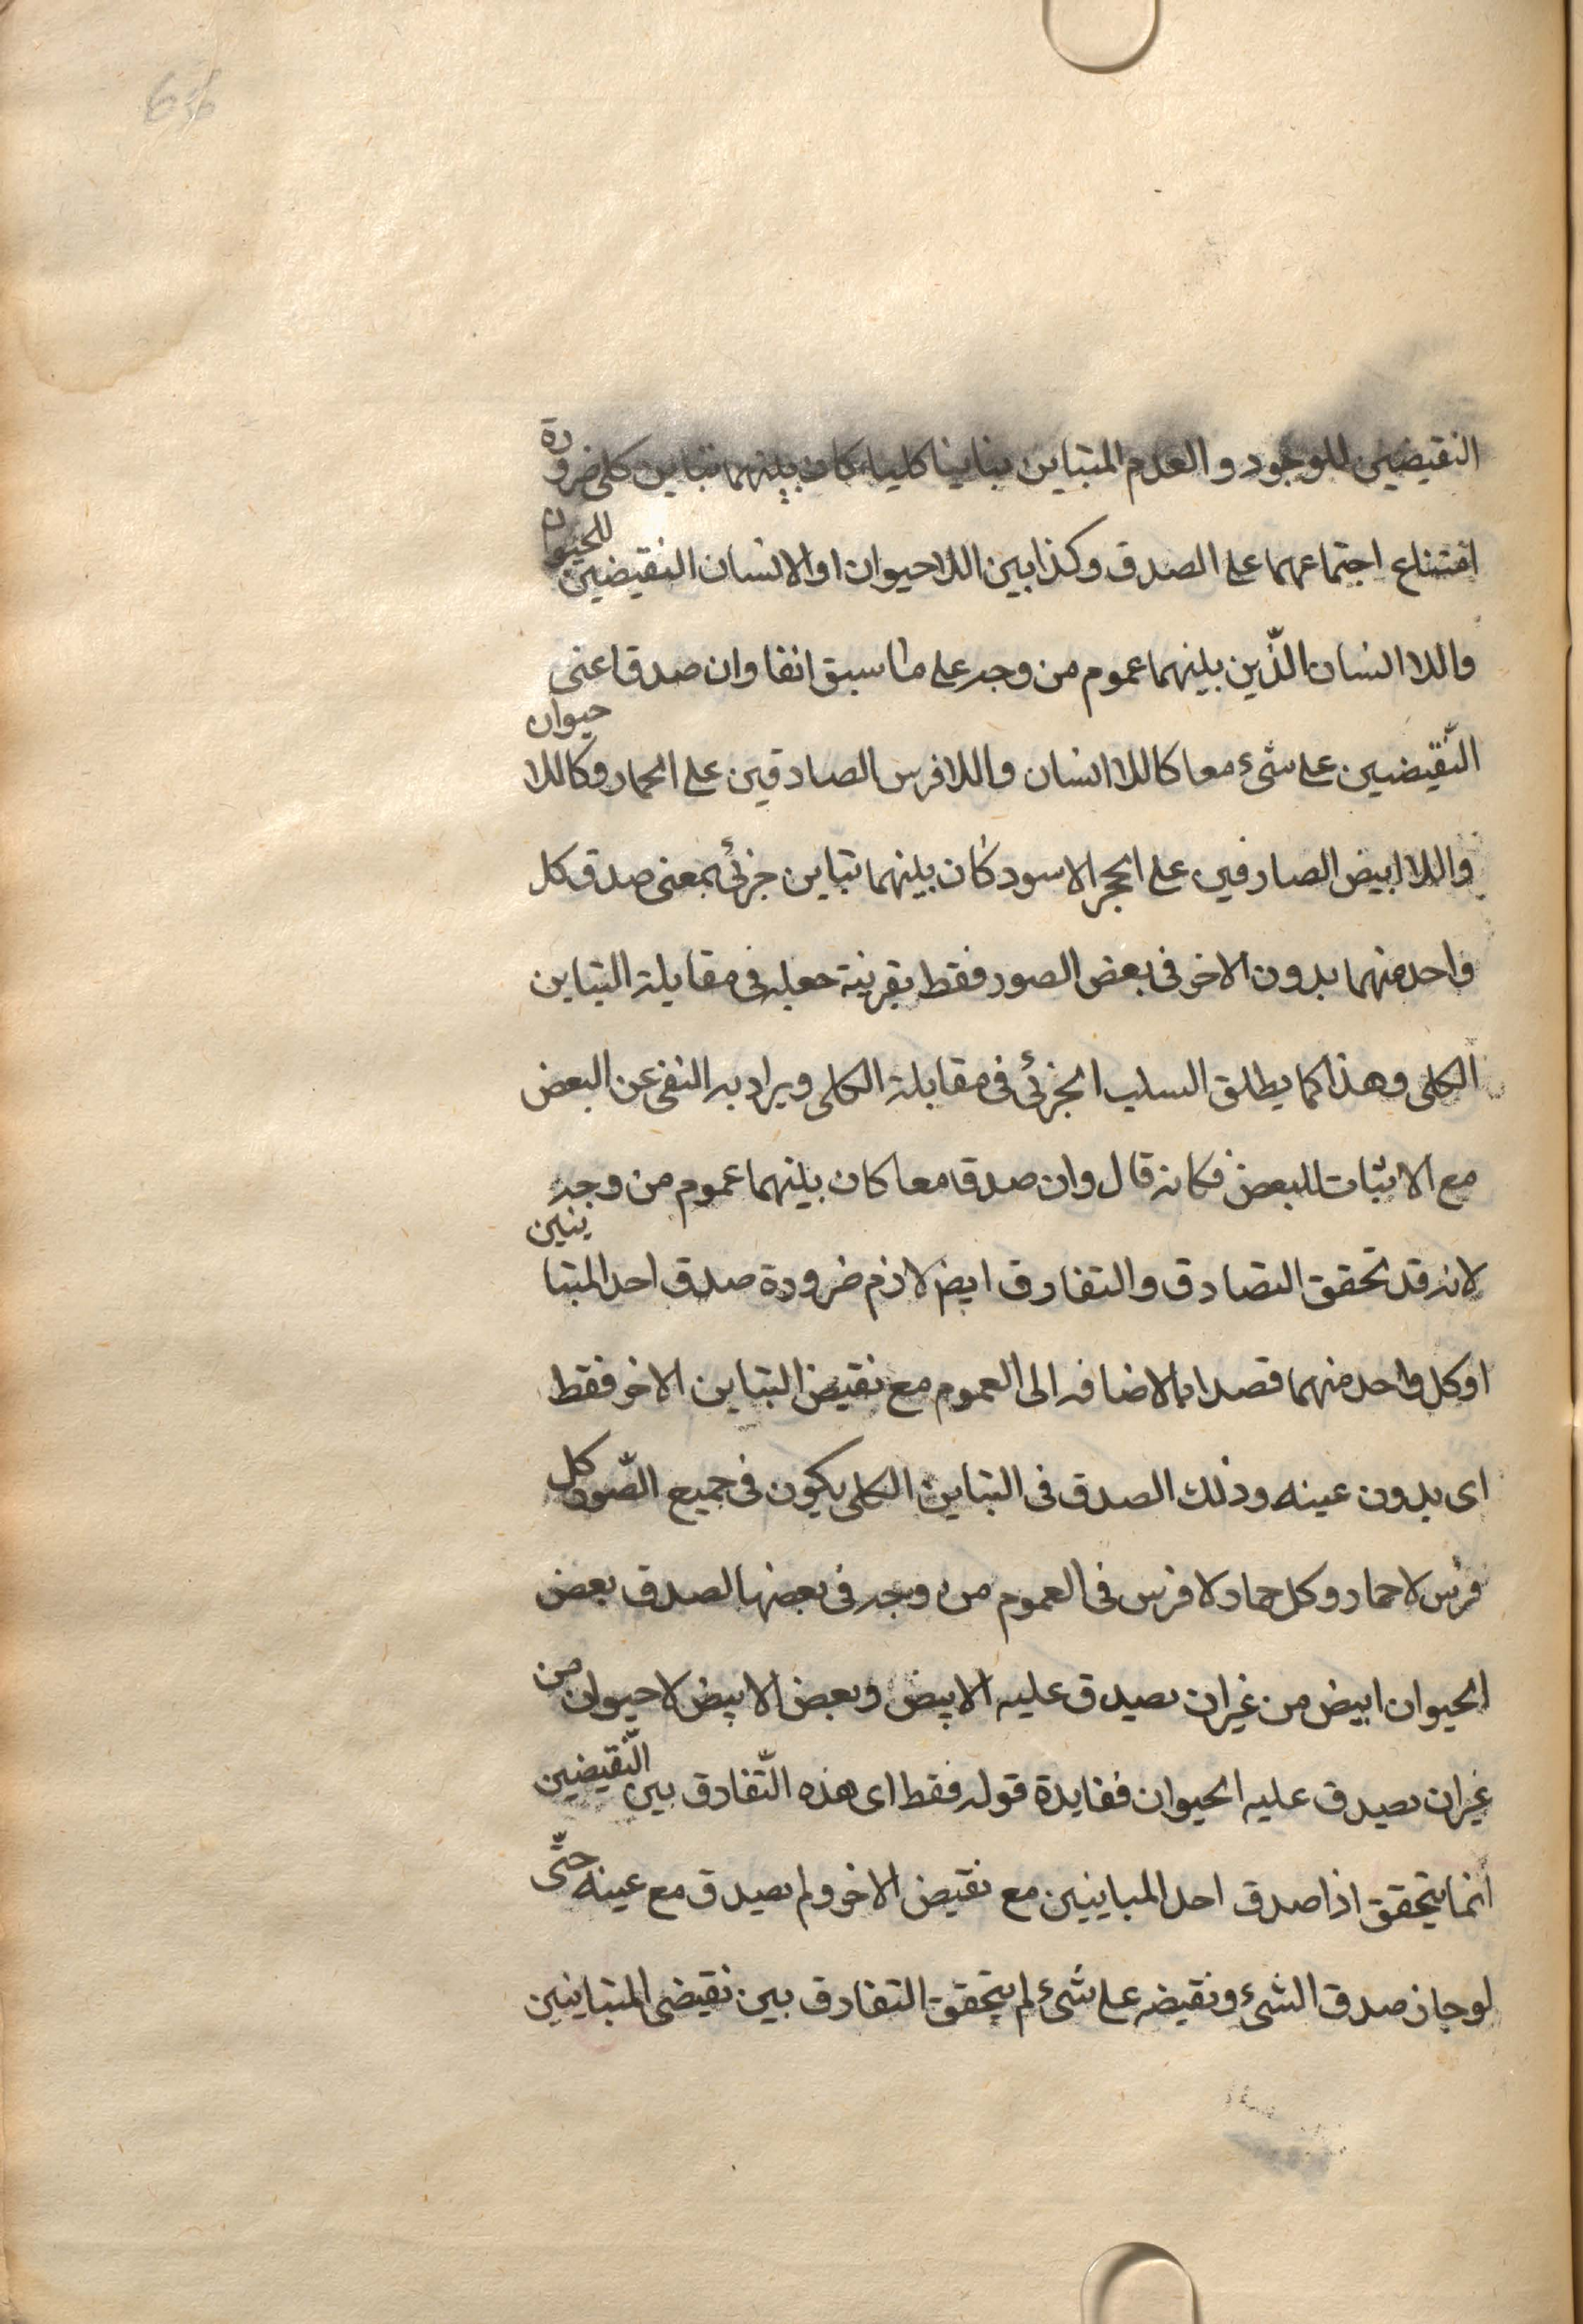 66
النقيضين للوجود والعدم المتباين بتاينا كليا كان بينهما تباين كلى ضرورة
امتناع اجتماعهما على الصدق وكذا بين اللاحيوان او الانسان النقيضين للحيوان
واللا انسان الّذين بينهما عموم من وجه على ما سبق انفا وان صدقا اعنى
النّقيضين على شئ معا كاللا انسان واللا فرس الصادقين على الحمار وكاللا حيوان
واللا ابيض الصادقين على الحجر الاسود كان بينهما تباين جزئى بمعنى صدق كل
واحد منهما بدون الاخر فى بعض الصور فقط بقرينة جعله فى مقابلة التباين
الكلى وهذا كما يطلق السلب الجزئى فى مقابلة الكلى ويراد به النفى عن البعض
مع الاثبات للبعض فكانه قال وان صدقا معا كان بينهما عموم من وجه
لانه قد تحقق التصادق والتفارق ايض لازم ضرورة صدق احد المتباينين
او كل واحد منهما قصدا بالاضافه الى العموم مع نقيض التباين الاخر فقط
اى بدون عينه وذلك الصدق فى التباين الكلى يكون فى جميع الصّور كل
فرس لا حمار وكل حمار لا فرس فى العموم من وجه فى بعضها لصدق بعض
الحيوان ابيض من غير ان يصدق عليه الابيض وبعض الابيض لا حيوان من
غير ان يصدق عليه الحيوان ففايدة قوله فقط اى هذه التّفارق بين النّقيضين
انما يتحقق اذا صدق احد المباينين مع نقيض الاخر ولم يصدق مع عينه حتّى
لو جاز صدق الشئ ونقيضه على شئ لم يتحقق التفارق بين نقيضى المتباينين